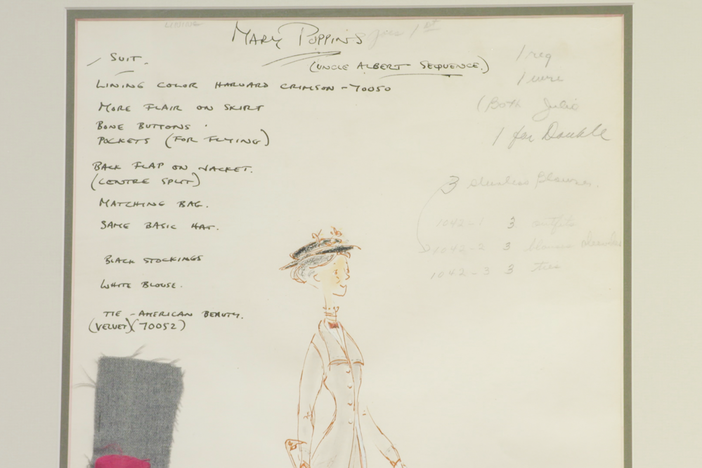 MARY POPPINS June 1st
SUIT.
(UNCLE ALBERT SEQUENCE)
LINING COLOR HARVARD CRIMSON - 70050
MORE FLAIR ON SKIRT
BONE BUTTONS
POCKETS (FOR FLYING)
BACK FLAP ON JACKET.
(CENTRE SPLIT)
MATCHING BAG.
SAME BASIC HAT.
BLACK STOCKINGS
WHITE BLOUSE.
TIE - AMERICAN BEAUTY.
(VELVET) (70052)
1 reg
1 wire
(Both Julie
1 for Double
3
1042-1 3
1042-2 3
1042-3 3 ties